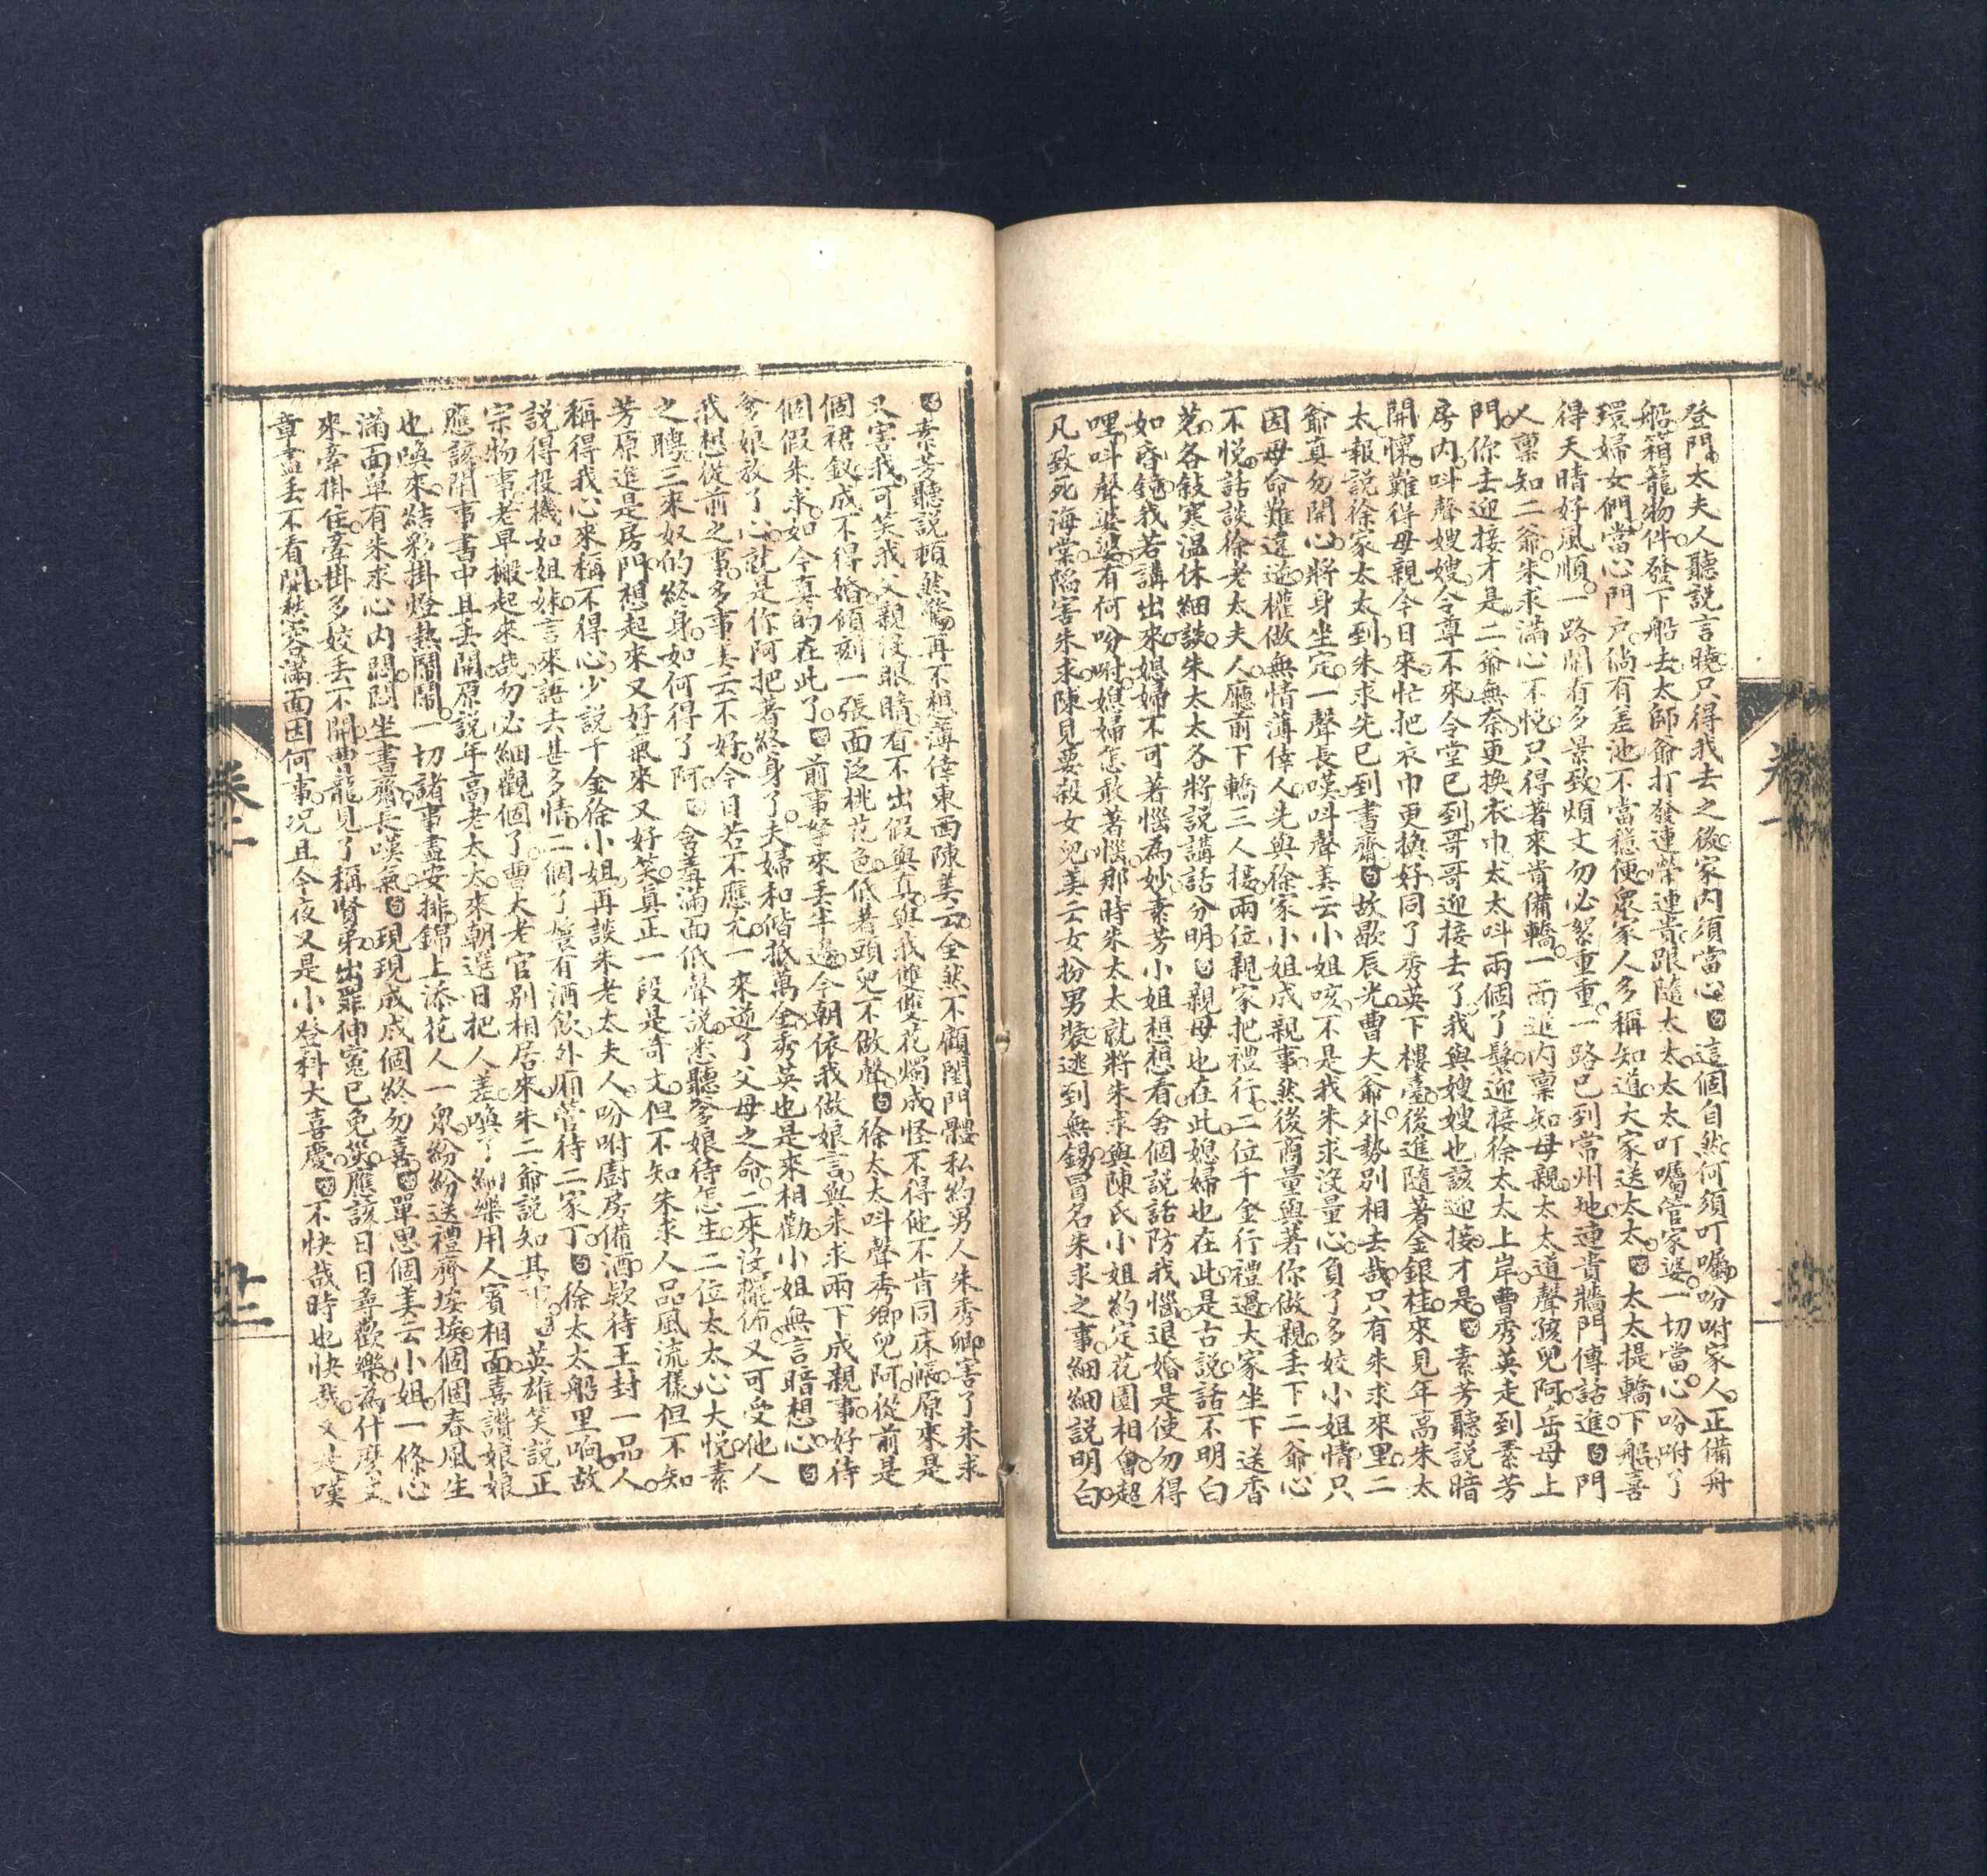 登門太夫人聽說言曉只得我去之後家内須當心白這個自然何須叮囑吩咐家人正備舟
船箱籠物件發下船去太師爺打發連幣連貴跟隨太太太太叮囑管家婆一切當心吩咐了
環婦女們當心門戶倘有差池不當穩便眾家人多稱知道大家送太太唱太太提轎下船喜
得天晴好風順一路閒有多景致煩文勿必絮重重一路已到常州地連貴牆門傳話進白門
人稟知二爺朱求滿心不悅只得著來貴備轎一面進内稟知母親太太道聲孩兒阿岳母上
門你去迎接才是二爺無奈更換衣巾太太叫兩個了鬟迎接徐太太上岸曹秀英走到素芳
房内叫聲嫂嫂令尊不來令堂已到哥哥迎接去了我與嫂嫂也該迎接才是唱素芳聽說暗
開懷難得母親今日來忙把衣巾更換好同了秀英下樓臺後進隨著金銀桂來見年高朱太
太報說徐家太太到朱求先已到書齋白故歇辰光曹大爺外勢別相去哉只有朱求來里二
爺真勿開心將身坐定一聲長嘆叫聲美云小姐咳不是我朱求沒量心負了多姣小姐情只
因母命難違逆權做無情薄倖人先與徐家小姐成親事然後商量與著你做親丢下二爺心
不悅話談徐老太夫人廳前下轎三人接兩位親家把禮行二位千金行禮過大家坐下送香
茗各敍寒温休細談朱太太各將說講話分明唱親母也在此媳婦也在此是古說話不明白
如昏鏡我若講出來媳婦不可著惱為妙素芳小姐想想看舍個說話防我惱退婚是使勿得
哩叫聲婆婆有何吩咐媳婦怎敢著惱那時朱太太就將朱求與陳氏小姐約定花園相會超
凡致死海棠陷害朱求陳見要殺女兒美云女扮男裝逃到無錫冒名朱求之事細細說明白
唱素芳聽說頓然驚再不想薄倖東西陳美云全然不顧閨門體私約男人朱秀卿害了朱求
又害我可笑我父親沒眼睛有不出假與真與我雙雙花燭成怪不得他不肯同床帳原來是
個裙釵成不得婚傾刻一張面泛桃花色低著頭兒不做聲白徐太太叫聲秀卿兒阿從前是
個假朱求如今真的在此了唱前事拏來丢半邊今朝依我做娘言與朱求兩下成親事好待
爹娘放了心就是你阿把著終身了夫婦和偕抵萬金秀英也是來相勸小姐無言暗想心白
我想從前之事多事美云不好今日若不應允一來逆了父母之命二來沒擺佈又可受他人
之聘三來奴的終身如何得了阿唱含羞滿面低聲說悉聽爹娘待怎生二位太太心大悅素
芳原進是房門想起來又好氣來又好笑真正一段是奇文但不知朱求人品風流樣但不知
稱得我心來稱不得心少說千金徐小姐再談朱老太夫人吩咐廚房備酒款待王封一品人
說得投機如姐妹言來語去甚多情二個了鬟有酒飲外廂管待二家丁白徐太太船里响故
宗物事老早搬起來哉勿必細觀個了曹大老官別相居來朱二爺說知其事唱英雄笑說正
應該閒事書中且丢開原說年高老太太來朝選日把人差喚了細樂用人賓相面喜讚娘娘
也喚來結彩掛燈熱鬧鬧一切諸事盡安排錦上添花人一眾紛紛送禮齊埃埃個個春風生
滿面單有朱求心内悶悶坐書齋長嘆氣白現現成成個終勿喜唱單思個美云小姐一條心
來牽掛住牽掛多姣丢不開曹龍見了稱賢弟出罪伸寃已免災應該日日尋歡樂為什麽文
章盡丢不看閒愁容滿面因何事况且今夜又是小登科大喜慶唱不快哉時也快哉又是嘆
卷一
卷二
廿二